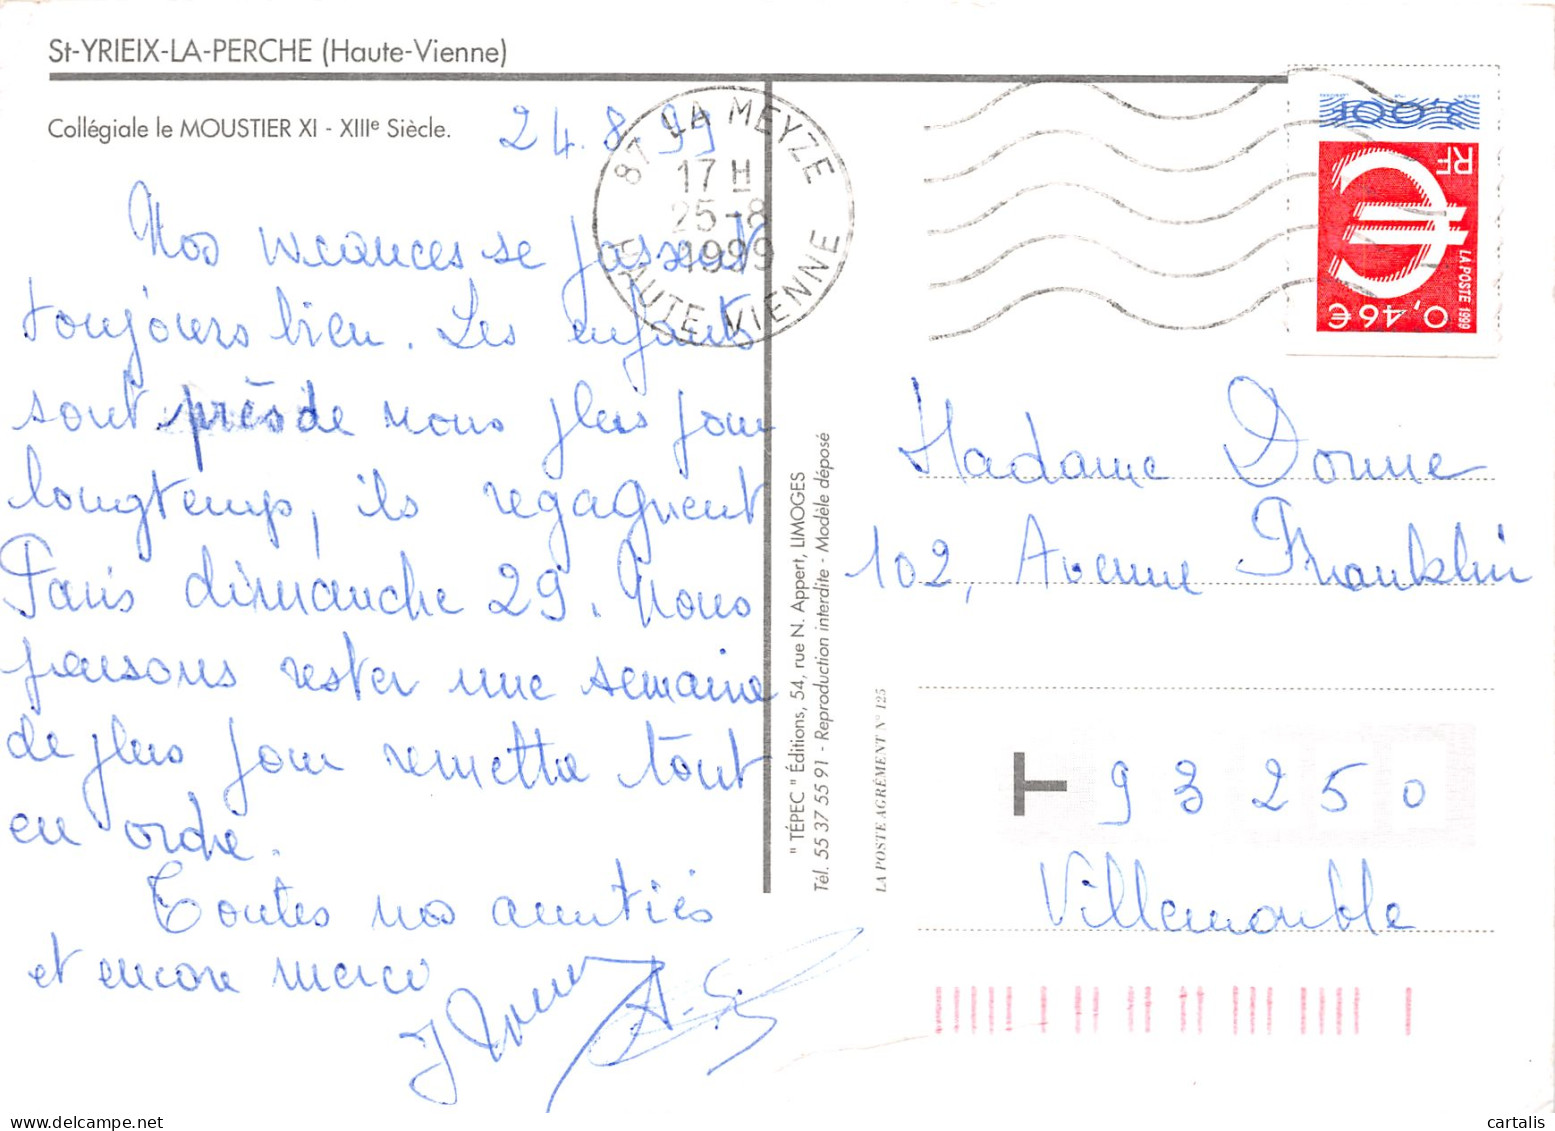 St-YRIEIX-LA-PERCHE (Haute-Vienne)
Collégiale le MOUSTIER XI - XIIIe Siècle.
24.8.99
Nos vacances se passent
toujours bien. Les enfants
sont près de nous plus pour
longtemps, ils regagnent
Paris dimanche 29. Nous
pensons rester une semaine
de plus pour remettre tout
en ordre.
Toutes nos amitiés
et encore merci
87 LA MEYZE
17 H
25-8
1999
HAUTE VIENNE
3,00F
RF
0,46€
LA POSTE 1999
" TÉPEC " Éditions, 54, rue N. Appert, LIMOGES
Tél. 55 37 55 91 - Reproduction interdite - Modèle déposé
LA POSTE AGRÉMENT N° 125
Madame Donne
102, Avenue Franklin
T 93250
Villemomble
cartalis